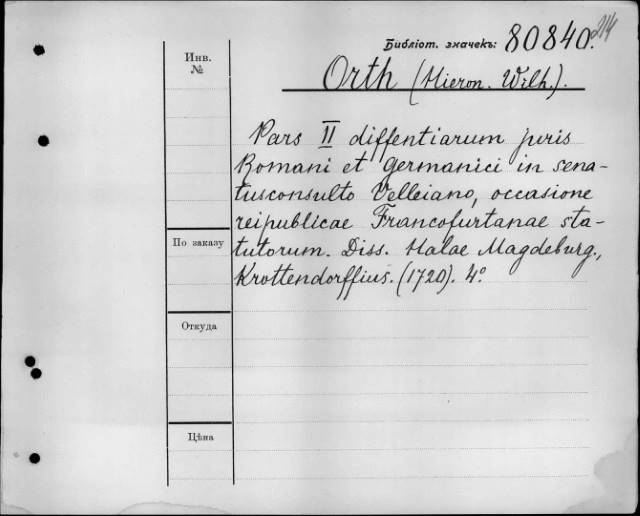 Библіот. значекъ: 80840. 214
Инв. №
Orth (Hieron. Wilh.).
Pars II diffentiarum juris
Romani et germanici in sena-
tusconsulto Velleiano, occasione
reipublicae Francofurtanae sta-
tutorum. Diss. Halae Magdeburg.,
Krottendorffius. (1720). 4°
По заказу
Откуда
Цѣна